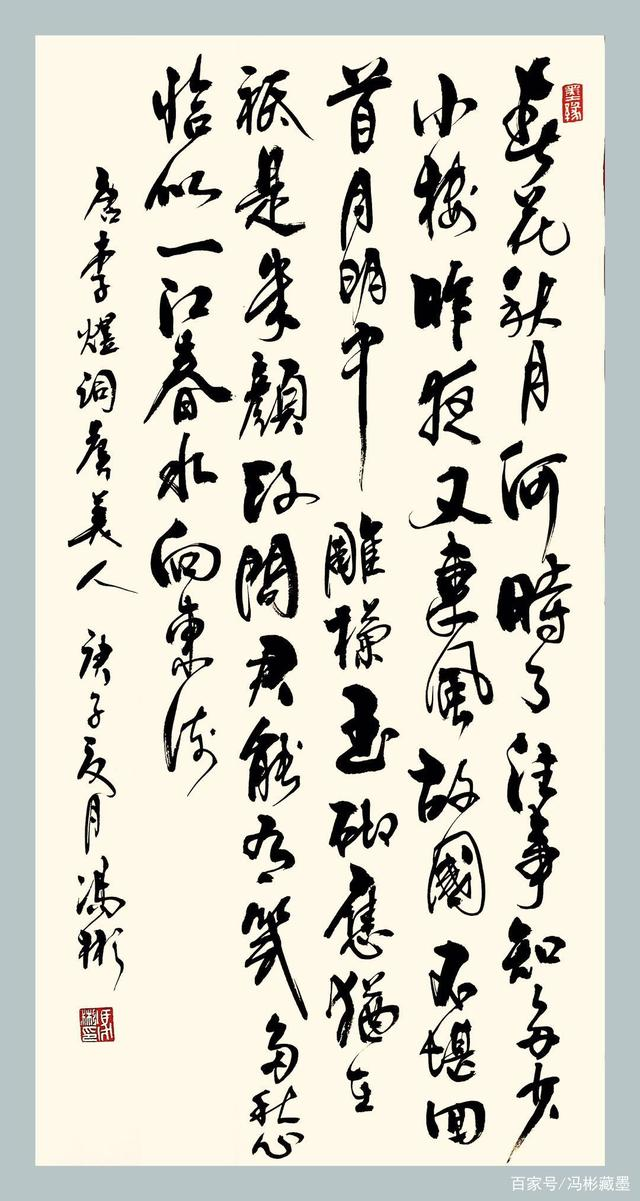 墨缘
春花秋月何時了往事知多少
小樓昨夜又東風故國不堪回
首月明中 雕欄玉砌應猶在
祇是朱顏改問君能有幾多愁
恰似一江春水向東流
唐李煜詞虞美人 庚子夏月馮彬
百家号/冯彬藏墨